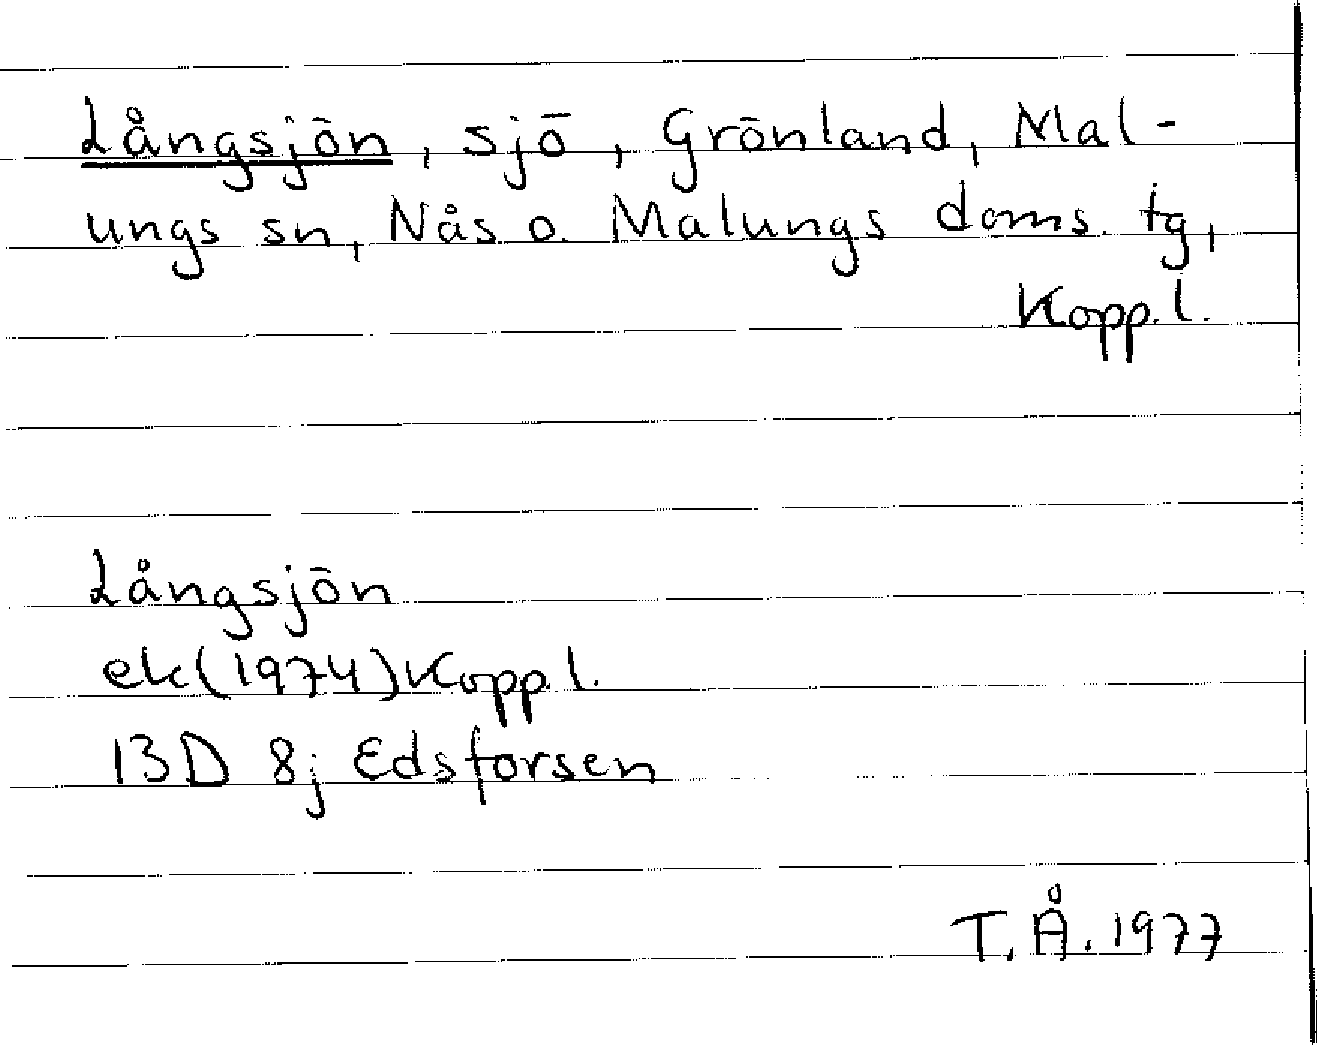 Långsjön, sjö, Grönland, Mal-
ungs sn, Nås o. Malungs doms. tg,
Kopp. l.
Långsjön
ek(1974)Kopp. l.
13D 8j Edsforsen
T.Å. 1977